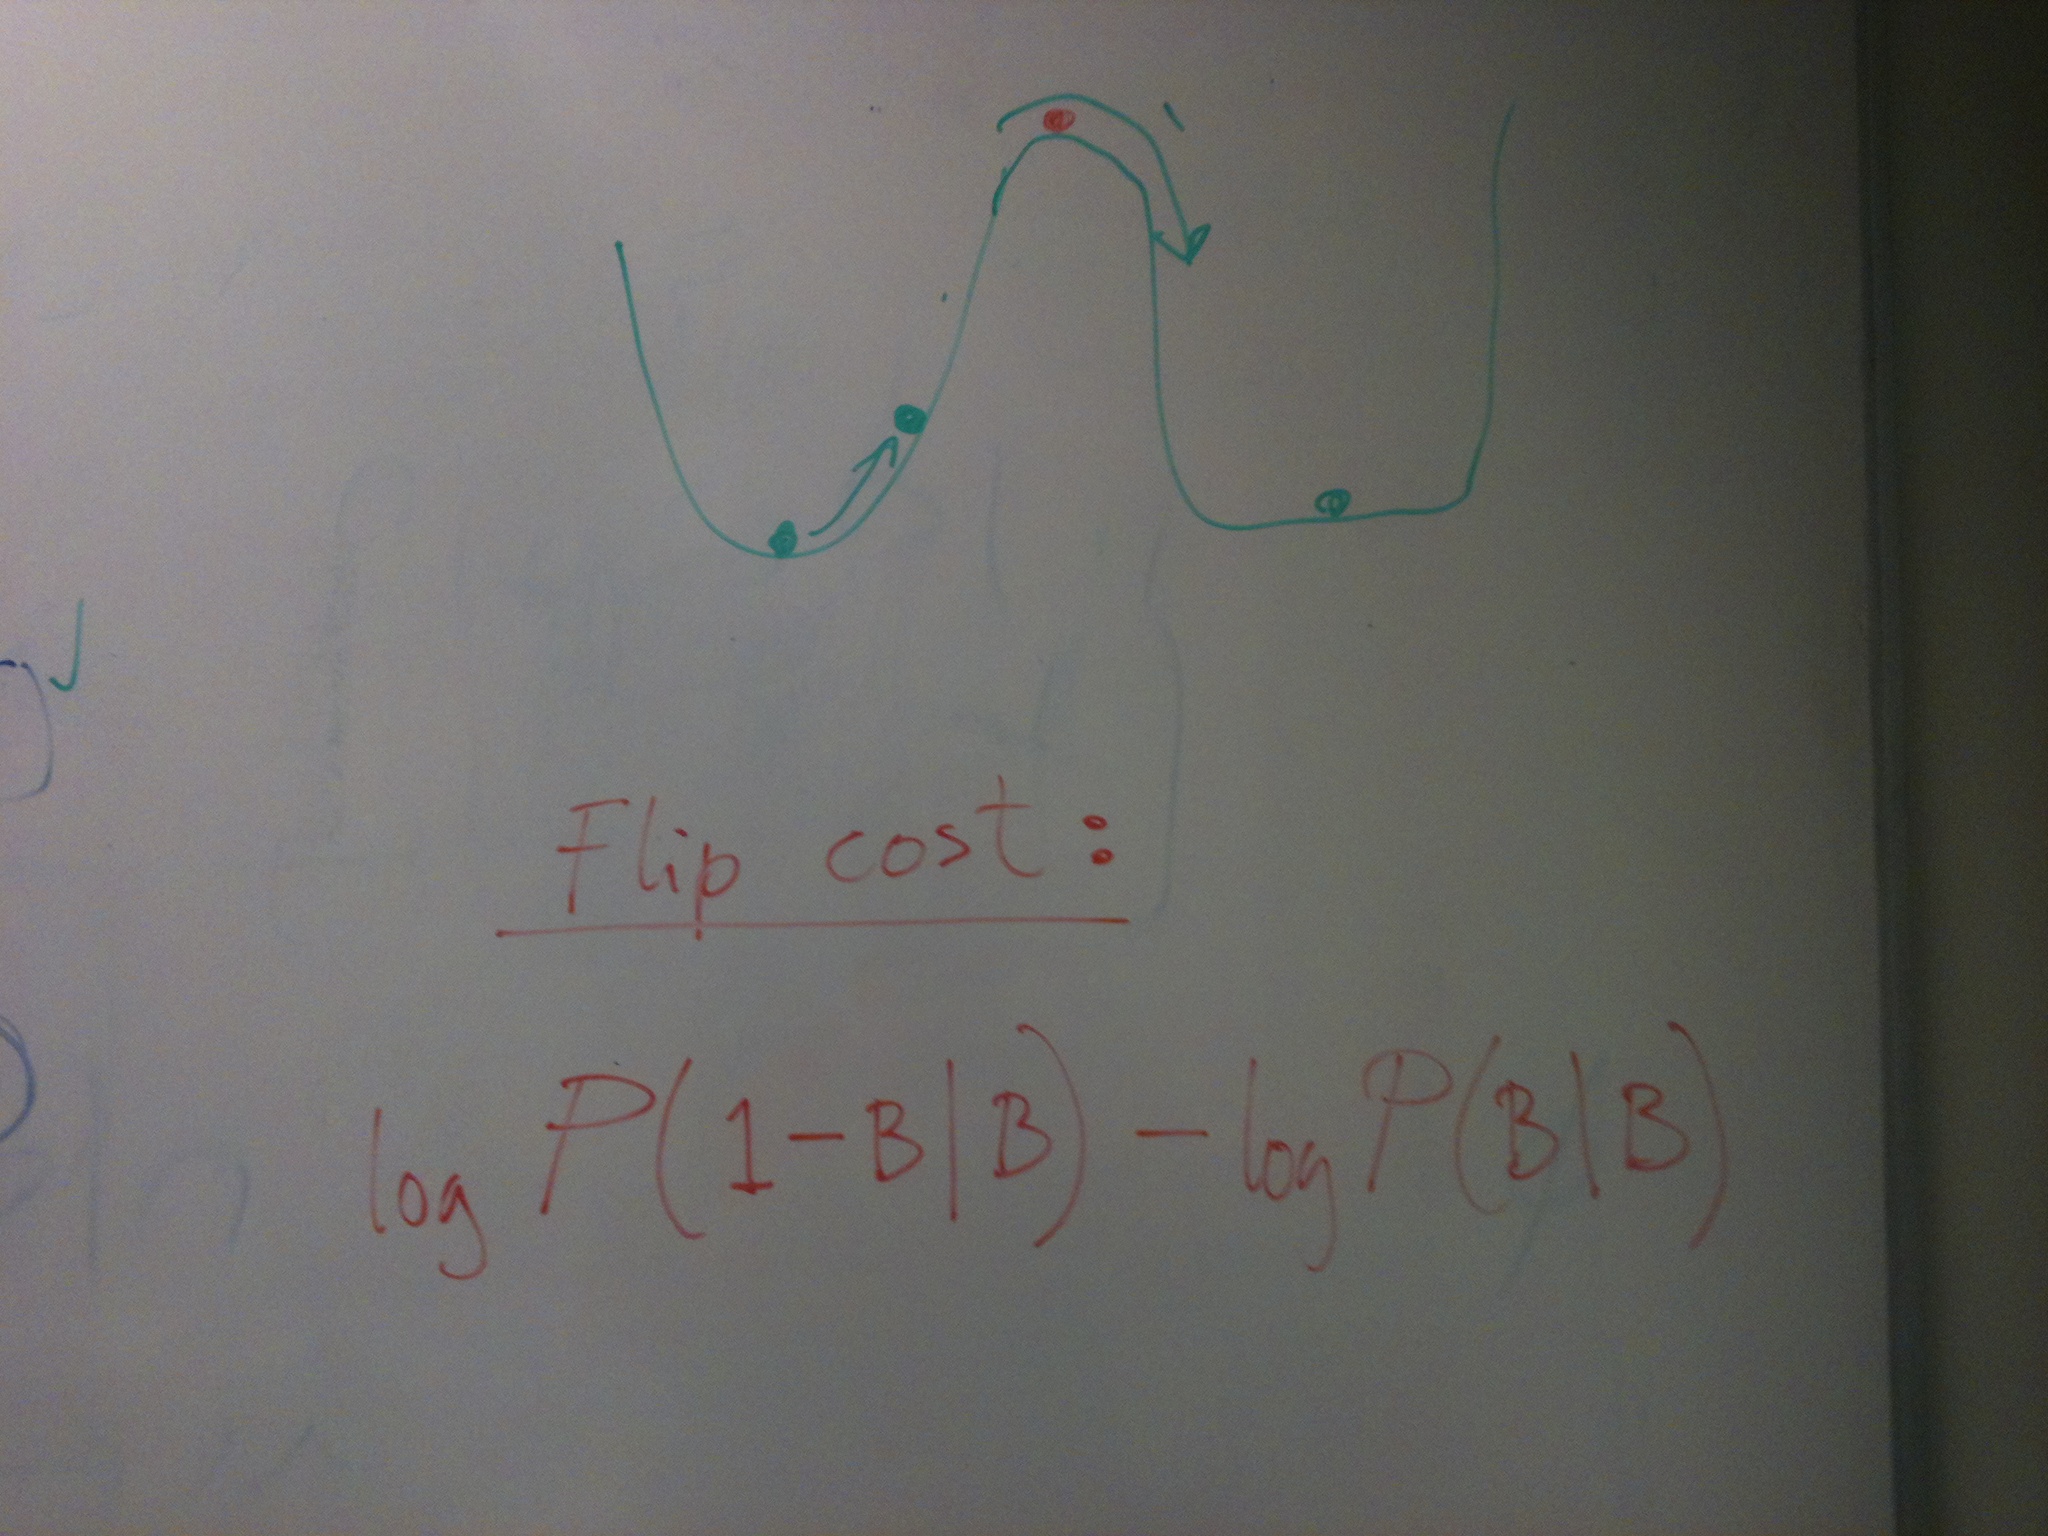 Flip cost:
log P(1-B|B) - log P(B|B)